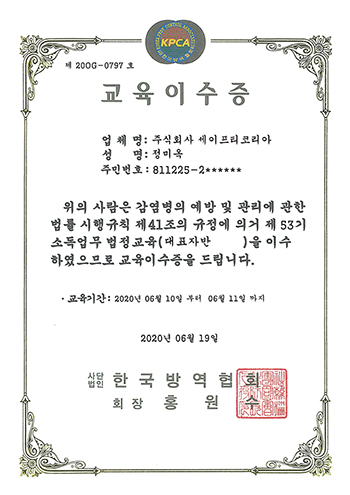 KPCA
제 20OG-0797 호
교육이수증
업체명: 주식회사 세이프티코리아
성 명: 정미옥
주민번호: 811225-2******
위의 사람은 감염병의 예방 및 관리에 관한
법률 시행규칙 제41조의 규정에 의거 제 53기
소독업무 법정교육(대표자반 )을 이수
하였으므로 교육이수증을 드립니다.
· 교육기간: 2020년 06월 10일 부터 06월 11일 까지
2020년 06월 19일
사단법인 한국방역협회
회장 홍원수